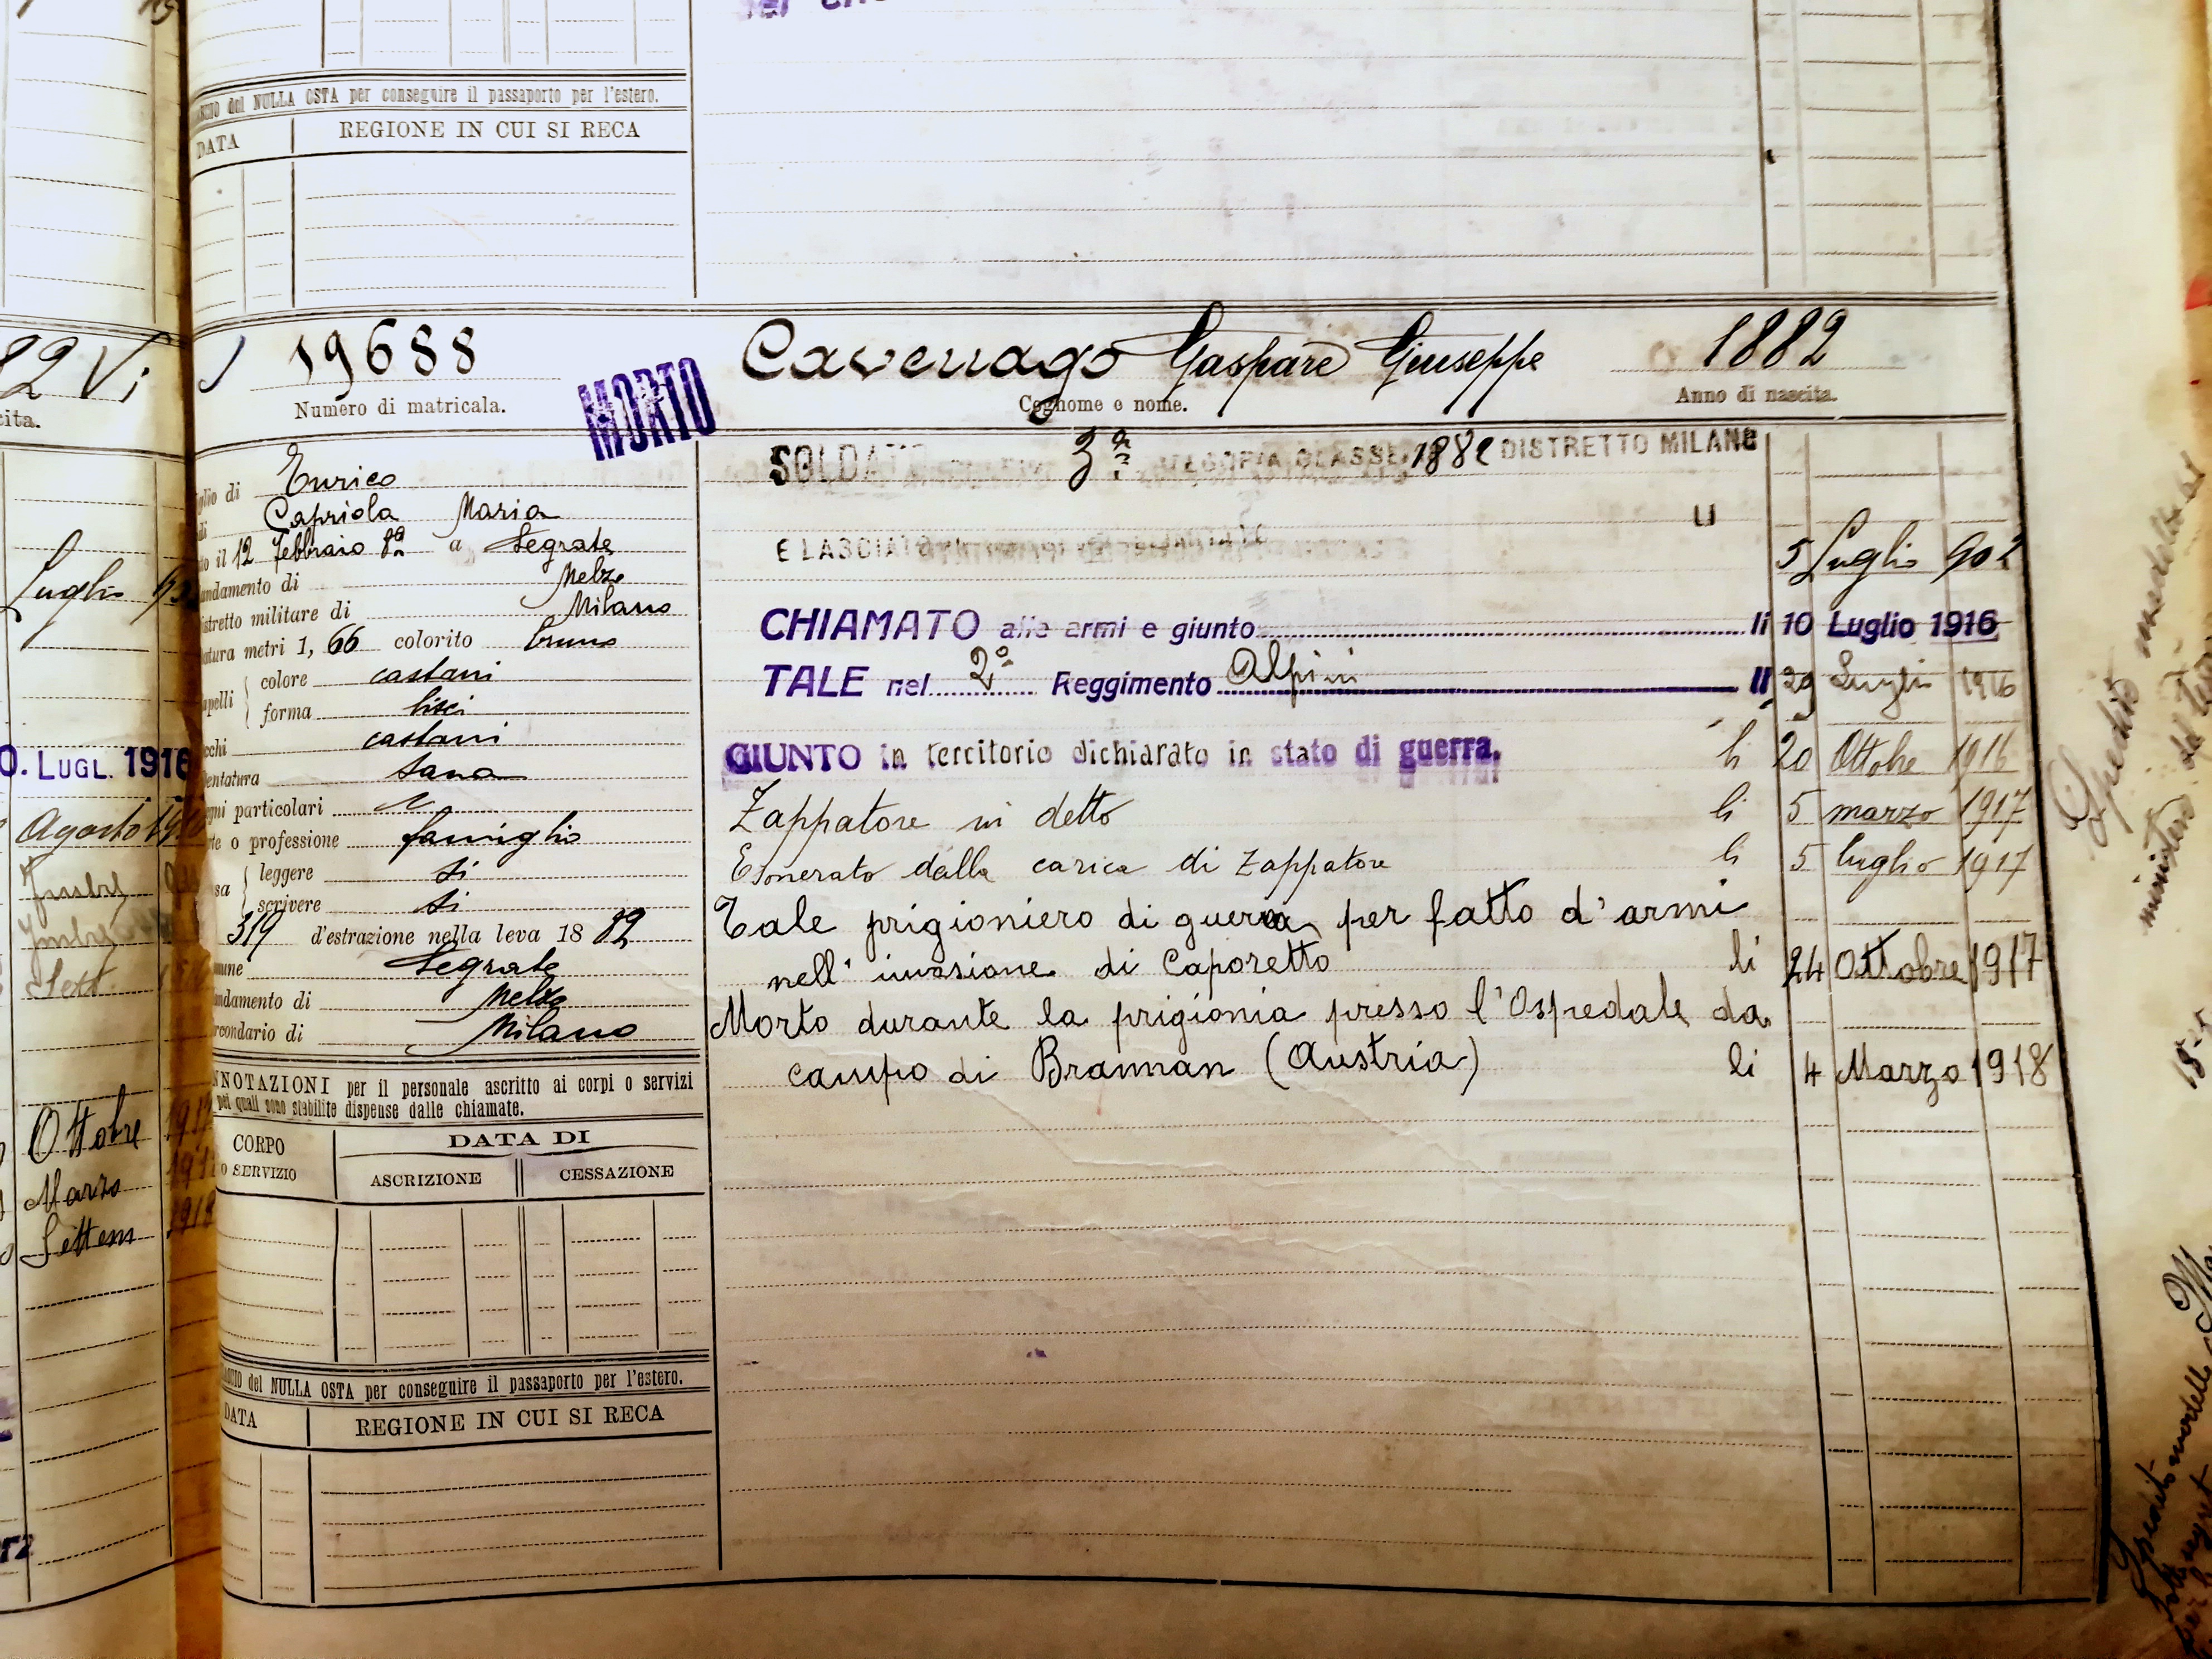 RILASCIO del NULLA OSTA per conseguire il passaporto per l'estero.
DATA REGIONE IN CUI SI RECA
82 Vi
cita.
Luglio
0. LUGL. 1916
Agosto
Sett.
Ottobre
Marzo
Settem
19688
Numero di matricala.
MORTO
Cavenago Gaspare Giuseppe
Cognome e nome.
1882
Anno di nascita.
glio di Enrico
di Capriola Maria
to il 12 Febbraio 82 a Segrate
andamento di Melzo
istretto militare di Milano
atura metri 1, 66 colorito bruno
apelli colore castani
forma lisci
cchi castani
entatura sana
egni particolari
rte o professione famiglio
sa leggere si
scrivere si
319 d'estrazione nella leva 18 82
mune Segrate
andamento di Melzo
ircondario di Milano
ANNOTAZIONI per il personale ascritto ai corpi o servizi
pei quali sono stabilite dispense dalle chiamate.
CORPO
O SERVIZIO
DATA DI
ASCRIZIONE CESSAZIONE
RILASCIO del NULLA OSTA per conseguire il passaporto per l'estero.
DATA REGIONE IN CUI SI RECA
SOLDATO 3ª CATEGORIA CLASSE 1882 DISTRETTO MILANO
E LASCIATO 5 Luglio 902
CHIAMATO alle armi e giunto li 10 Luglio 1916
TALE nel 2º Reggimento Alpini li 29 Luglio 1916
GIUNTO in territorio dichiarato in stato di guerra. li 20 Ottobre 1916
Zappatore in detto li 5 marzo 1917
Esonerato dalla carica di zappatore li 5 luglio 1917
Tale prigioniero di guerra per fatto d'armi
nell' invasione di Caporetto li 24 Ottobre 1917
Morto durante la prigionia presso l'Ospedale da
campo di Braunan (Austria) li 4 Marzo 1918
Spedito modello
ministero
Spedito modello